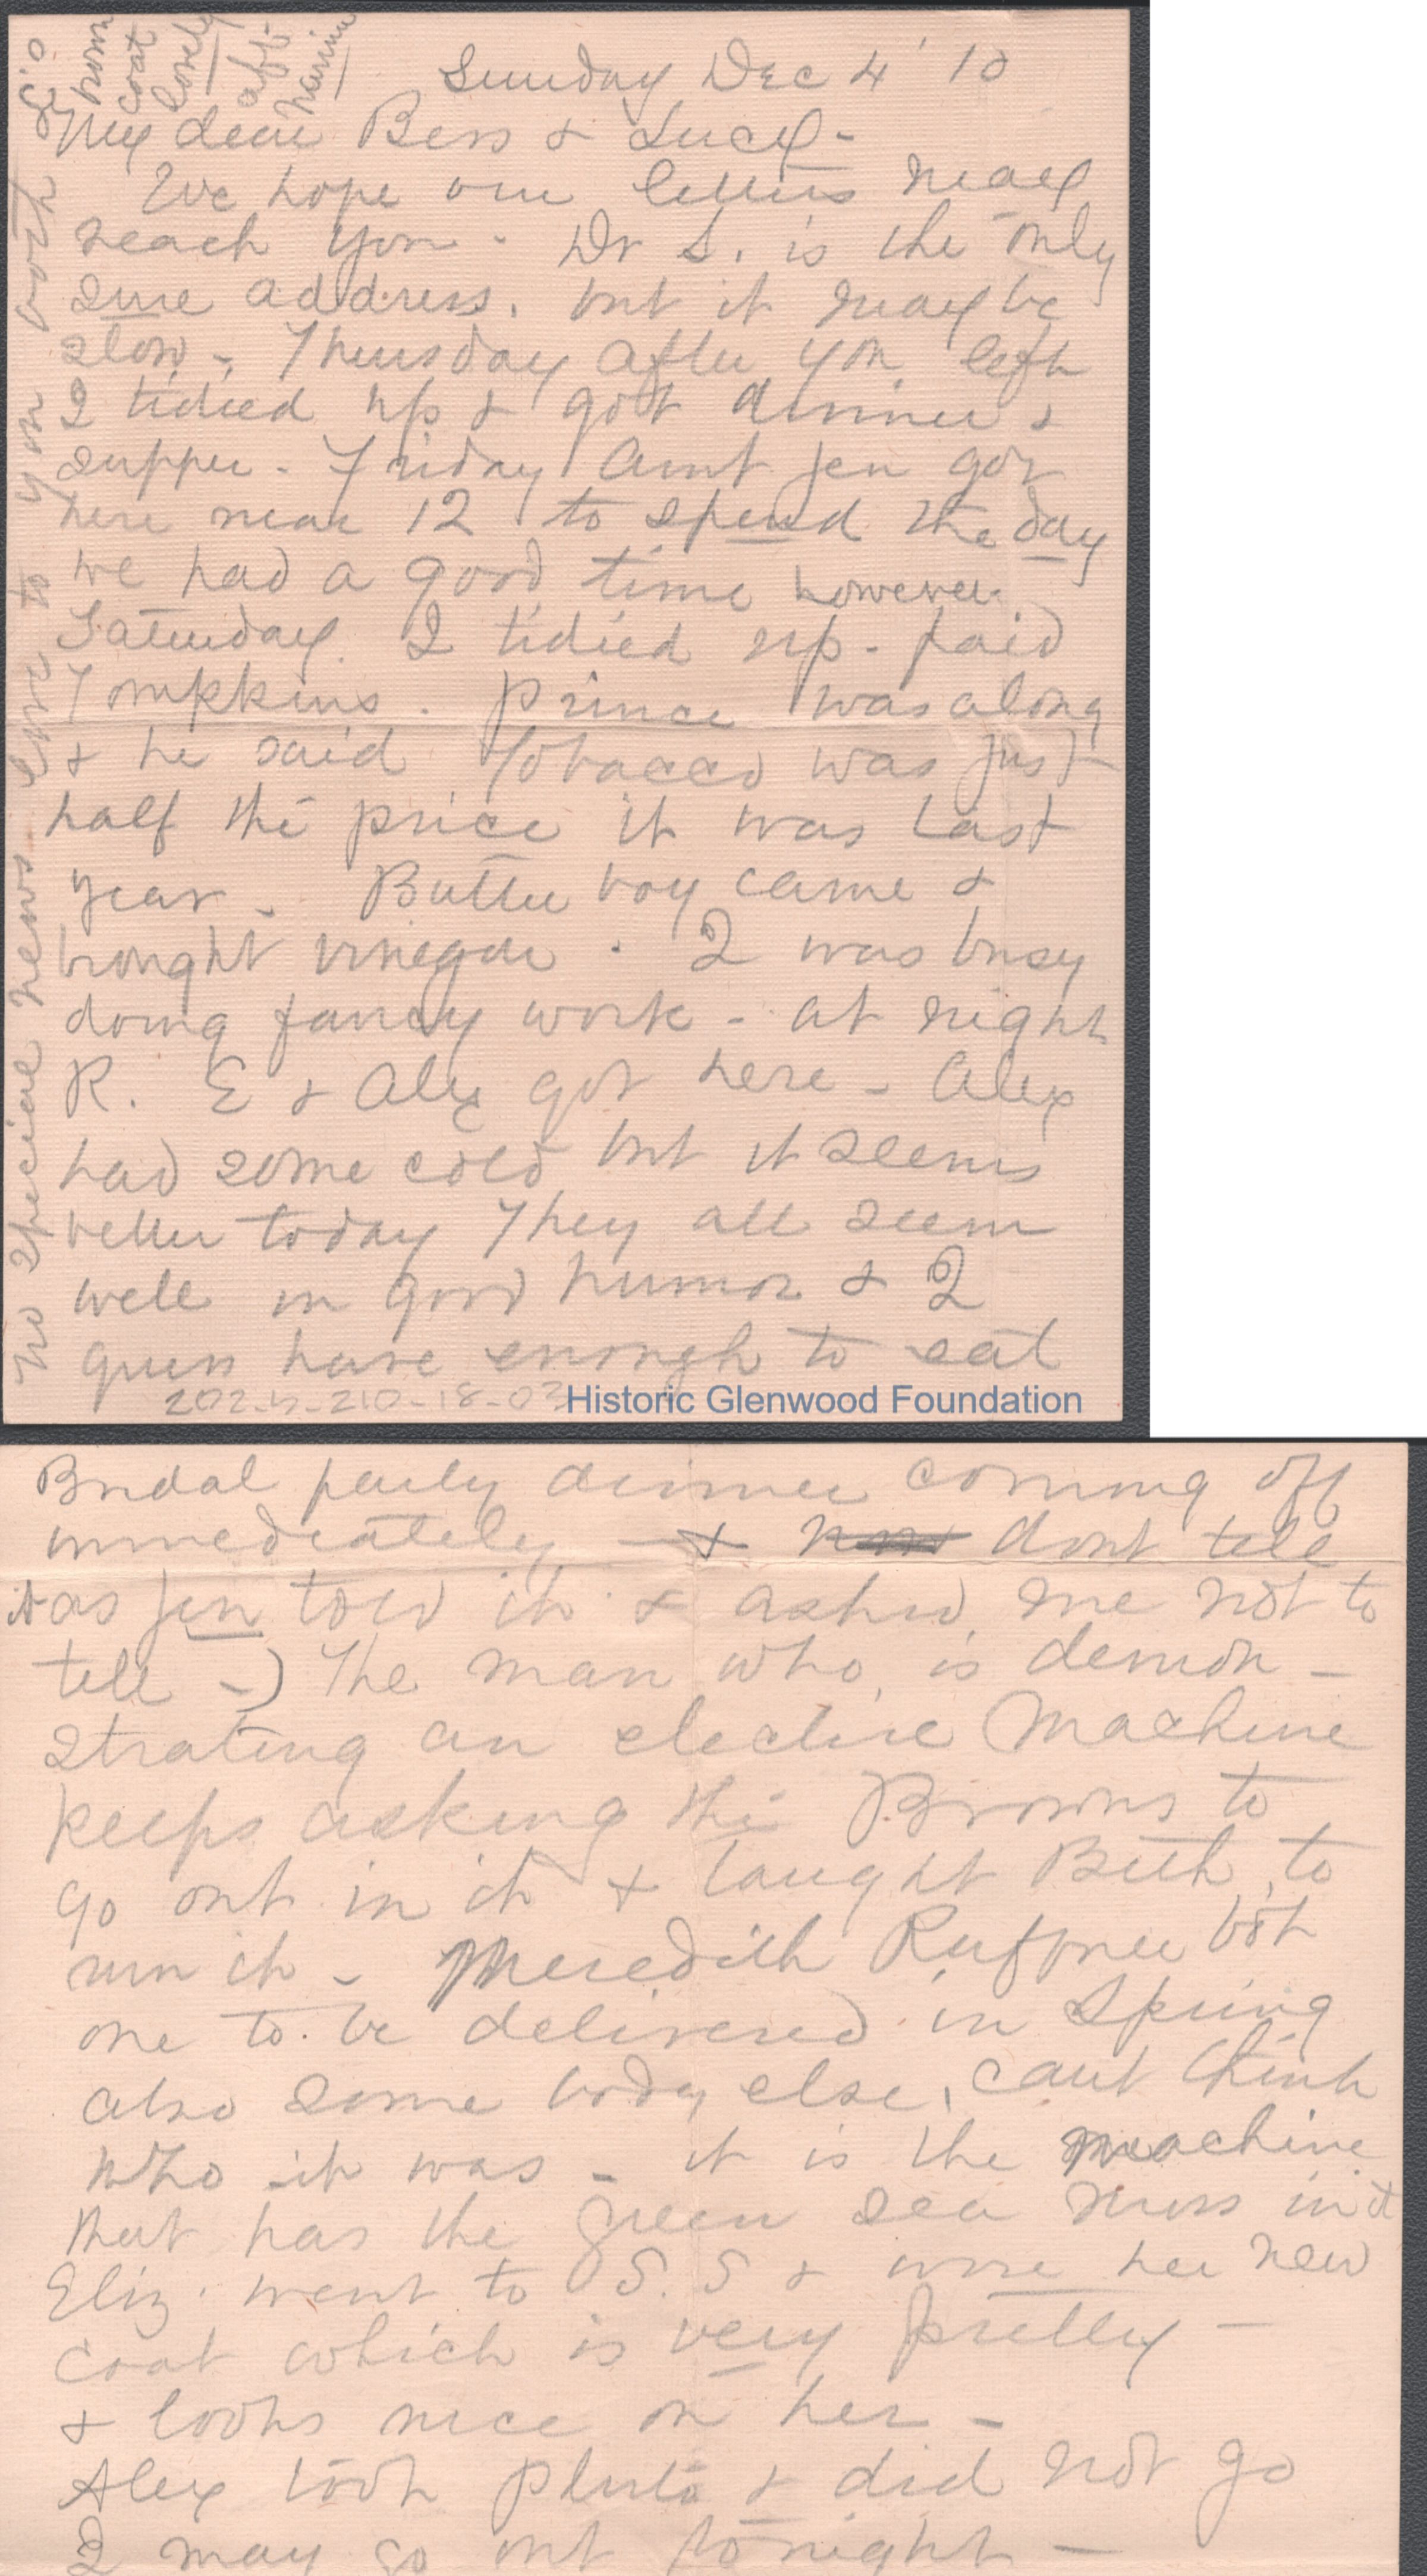 Sunday Dec 4 '10
My dear Bess & Lucy -
We hope our letters may
reach you - Dr S. is the only
sure address. but it may be
slow - Thursday after you left
I tidied up & got dinner &
supper - Friday Aunt Jen got
here near 12 to spend the day
we had a good time however.
Saturday I tidied up - paid
Tompkins. Prince was along
& he said Tobacco was just
half the price it was last
year - Butter boy came &
brought vinegar. I was busy
doing fancy work - at night
R. E & Alex got here - Alex
had some cold but it seems
better today They all seem
well in good humor & I
guess have enough to eat
No special news love to you both
brown
coat
lovely
aff.
202.5-210-18-03
Historic Glenwood Foundation
Bridal party dinner coming off
immediately - & dont tell
it as Jen told it & asked me not to
tell -) The man who is demon -
strating an electric Machine
keeps asking the Browns to
go out in it & taught Beth to
run it - Meredith Ruffner bot
one to be delivered in Spring
also some body else, cant think
who it was - it is the machine
that has the green sea moss in it
Eliz. went to S. S & wore her new
coat which is very pretty -
& looks nice on her -
Alex took Pluto & did not go
I may go out tonight -